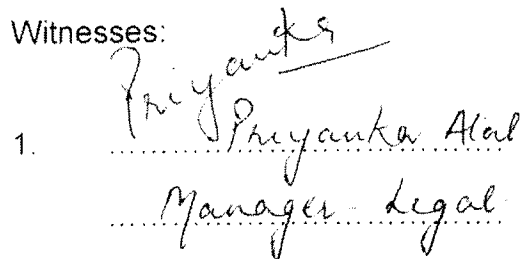 Witnesses:
Priyanka
1. Priyanka Alal
Manager - Legal